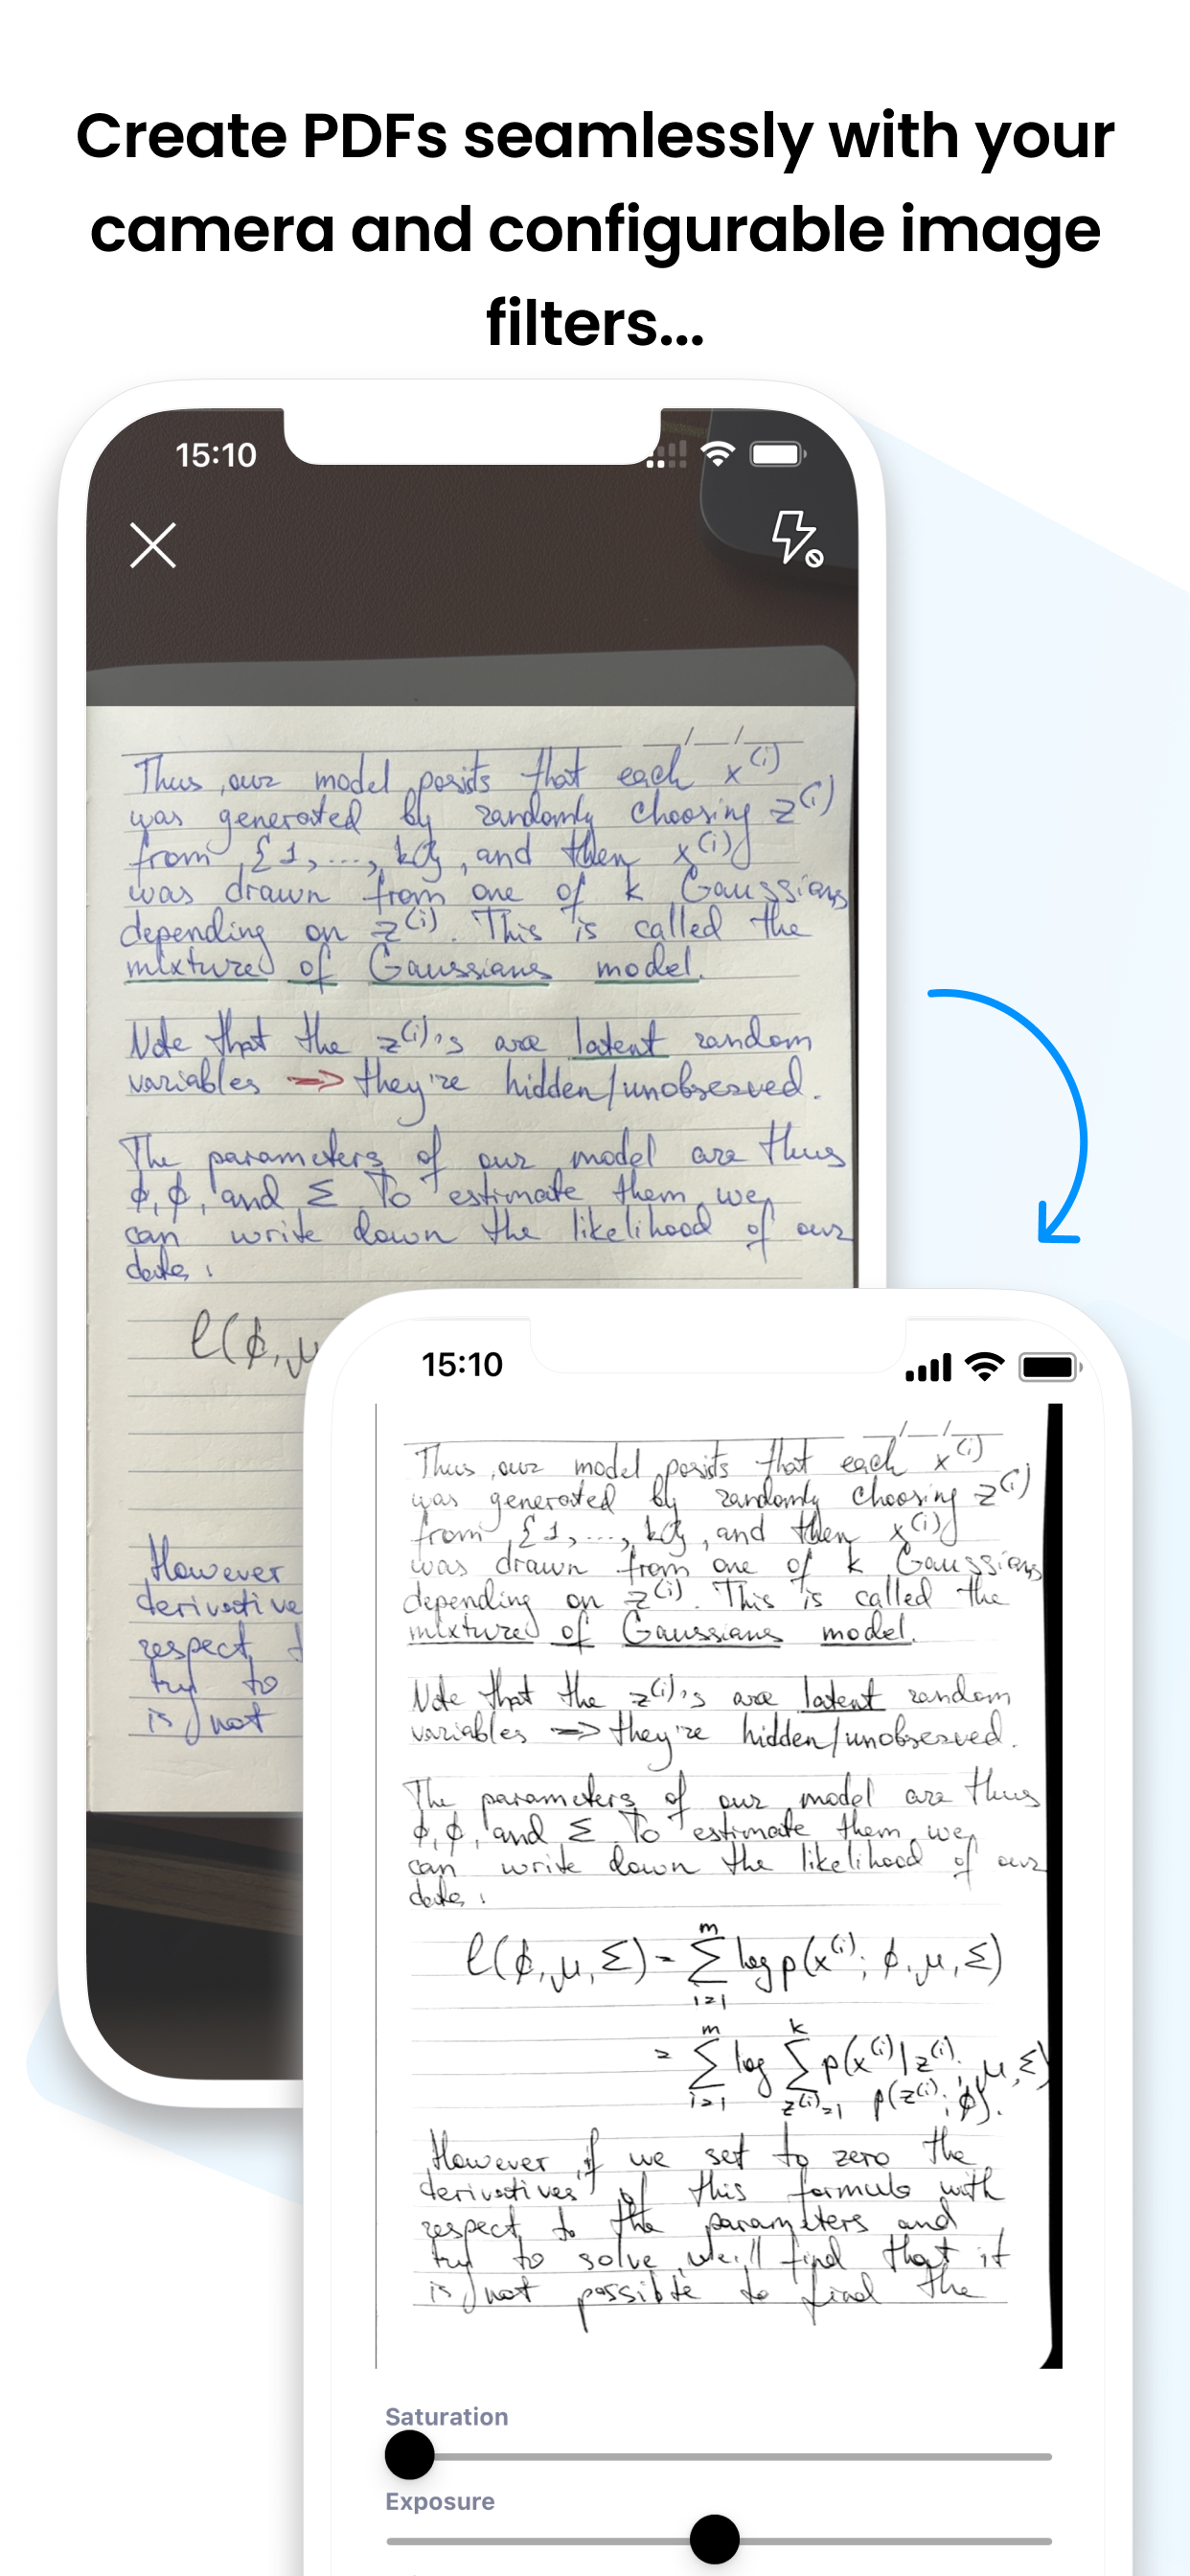 Create PDFs seamlessly with your
camera and configurable image
filters...
15:10
Thus, our model posits that each x⁽ⁱ⁾
was generated by randomly choosing z⁽ⁱ⁾
from {1, ..., k}, and then x⁽ⁱ⁾
was drawn from one of k Gaussians
depending on z⁽ⁱ⁾. This is called the
mixture of Gaussians model.
Note that the z⁽ⁱ⁾'s are latent random
variables => they're hidden/unobserved.
The parameters of our model are thus
ϕ, ϕ, and Σ. To estimate them, we
can write down the likelihood of our
data:
ℓ(ϕ, μ
However
derivative
respect
try to
is not
15:10
Thus, our model posits that each x⁽ⁱ⁾
was generated by randomly choosing z⁽ⁱ⁾
from {1, ..., k}, and then x⁽ⁱ⁾
was drawn from one of k Gaussians
depending on z⁽ⁱ⁾. This is called the
mixture of Gaussians model.
Note that the z⁽ⁱ⁾'s are latent random
variables => they're hidden/unobserved.
The parameters of our model are thus
ϕ, ϕ, and Σ. To estimate them, we
can write down the likelihood of our
data:
ℓ(ϕ, μ, Σ) = Σᵢ₌₁ᵐ log p(x⁽ⁱ⁾; ϕ, μ, Σ)
= Σᵢ₌₁ᵐ log Σ_{z⁽ⁱ⁾=1}ᵏ p(x⁽ⁱ⁾|z⁽ⁱ⁾; μ, Σ)
p(z⁽ⁱ⁾; ϕ).
However, if we set to zero the
derivatives of this formula with
respect to the parameters and
try to solve, we'll find that it
is not possible to find the
Saturation
Exposure